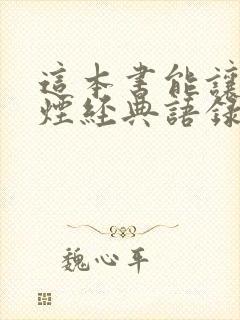 這本書能讓
煙經典語錄
魏心平